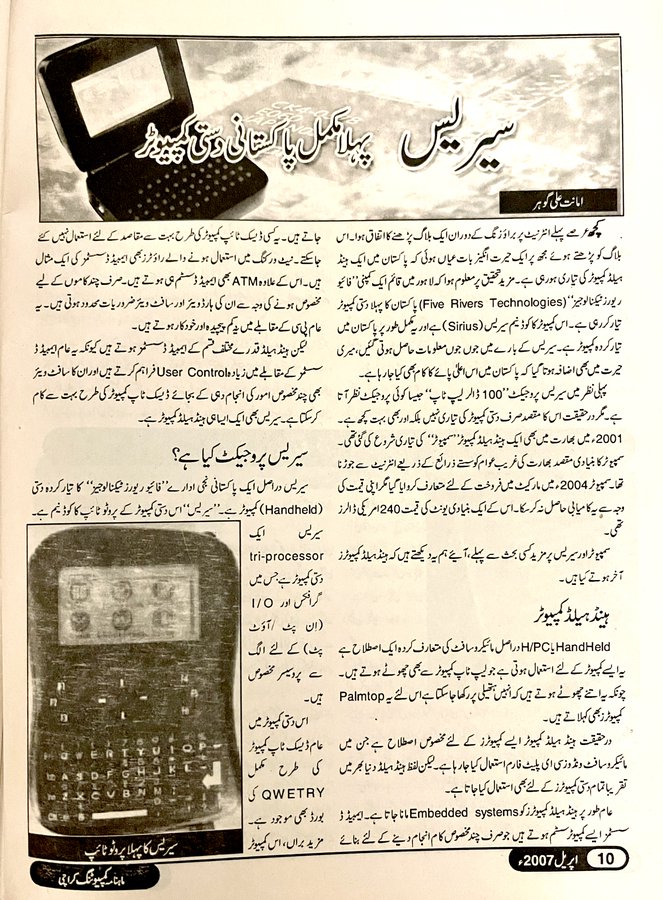 سیریس
پہلا مکمل پاکستانی دستی کمپیوٹر
امانت علی گوہر
کچھ عرصے پہلے انٹرنیٹ پر براؤزنگ کے دوران ایک بلاگ پڑھنے کا اتفاق ہوا۔ اس
بلاگ کو پڑھتے ہوئے مجھ پر ایک حیرت انگیز بات عیاں ہوئی کہ پاکستان میں ایک ہینڈ
ہیلڈ کمپیوٹر کی تیاری ہورہی ہے۔ مزید تحقیق پر معلوم ہوا کہ لاہور میں قائم ایک کمپنی ’’فائیو
ریورز ٹیکنالوجیز‘‘ (Five Rivers Technologies) پاکستان کا پہلا دستی کمپیوٹر
تیار کررہی ہے۔ اس کمپیوٹر کا کوڈنیم سیریس (Sirius) ہے اور یہ مکمل طور پر پاکستان میں
تیار کردہ کمپیوٹر ہے۔ سیریس کے بارے میں جوں جوں معلومات حاصل ہوتی گئیں، میری
حیرت میں بھی اضافہ ہوتا گیا کہ پاکستان میں اس اعلیٰ پائے کا کام بھی کیا جارہا ہے۔
پہلی نظر میں سیریس پروجیکٹ ’’100 ڈالر لیپ ٹاپ‘‘ جیسا کوئی پروجیکٹ نظر آتا
ہے۔ مگر درحقیقت اس کا مقصد صرف دستی کمپیوٹر کی تیاری نہیں بلکہ اور بھی بہت کچھ ہے۔
2001ء میں بھارت میں بھی ایک ہینڈ ہیلڈ کمپیوٹر ’’سمپیوٹر‘‘ کی تیاری شروع کی گئی تھی۔
سمپیوٹر کا بنیادی مقصد بھارت کی غریب عوام کو سستے ذرائع کے ذریعے انٹرنیٹ سے جوڑنا
تھا۔ سمپیوٹر 2004ء میں مارکیٹ میں فروخت کے لئے متعارف کروایا گیا مگر اپنی قیمت کی
وجہ سے یہ کامیابی حاصل نہ کرسکا۔ اس کے ایک بنیادی یونٹ کی قیمت 240 امریکی ڈالرز
تھی۔
سمپیوٹر اور سیریس پر مزید کسی بحث سے پہلے، آیئے ہم یہ دیکھتے ہیں کہ ہینڈ ہیلڈ کمپیوٹرز
آخر ہوتے کیا ہیں۔
ہینڈ ہیلڈ کمپیوٹر
HandHeld یا H/PC دراصل مائیکروسافٹ کی متعارف کردہ ایک اصطلاح ہے
یہ ایسے کمپیوٹر کے لئے استعمال ہوتی ہے جو لیپ ٹاپ کمپیوٹر سے بھی چھوٹے ہوتے ہیں۔
چونکہ یہ اتنے چھوٹے ہوتے ہیں کہ انہیں ہتھیلی پر رکھا جاسکتا ہے اس لئے یہ Palmtop
کمپیوٹرز بھی کہلاتے ہیں۔
درحقیقت ہینڈ ہیلڈ کمپیوٹر ایسے کمپیوٹرز کے لئے مخصوص اصطلاح ہے جن میں
مائیکروسافٹ ونڈوز سی ای پلیٹ فارم استعمال کیا جارہا ہے۔ لیکن لفظ ہینڈ ہیلڈ دنیا بھر میں
تقریباً تمام دستی کمپیوٹرز کے لئے بھی استعمال کیا جاتا ہے۔
عام طور پر ہینڈ ہیلڈ کمپیوٹرز کو Embedded systems مانا جاتا ہے۔ ایمبیڈڈ
سسٹمز ایسے کمپیوٹر سسٹم ہوتے ہیں جو صرف چند مخصوص کام انجام دینے کے لئے بنائے
جاتے ہیں۔ یہ کسی ڈیسک ٹاپ کمپیوٹر کی طرح بہت سے مقاصد کے لئے استعمال نہیں کئے
جاسکتے۔ نیٹ ورکنگ میں استعمال ہونے والے راؤٹرز بھی ایمبیڈڈ سسٹمز کی ایک مثال
ہیں۔ اس کے علاوہ ATM بھی ایمبیڈڈ سسٹم ہی ہوتے ہیں۔ صرف چند کاموں کے لیے
مخصوص ہونے کی وجہ سے ان کی ہارڈ ویئر اور سافٹ ویئر ضروریات محدود ہوتی ہیں۔ یہ
عام پی سی کے مقابلے میں کم پیچیدہ اور خودکار ہوتے ہیں۔
لیکن ہینڈ ہیلڈ قدرے مختلف قسم کے ایمبیڈڈ سسٹمز ہوتے ہیں کیونکہ یہ عام ایمبیڈڈ
سسٹمز کے مقابلے میں زیادہ User Control فراہم کرتے ہیں اور ان کا سافٹ ویئر
بھی چند مخصوص امور کی انجام دہی کے بجائے ڈیسک ٹاپ کمپیوٹر کی طرح بہت سے کام
کرسکتا ہے۔ سیریس بھی ایک ایسا ہی ہینڈ ہیلڈ کمپیوٹر ہے۔
سیریس پروجیکٹ کیا ہے؟
سیریس دراصل ایک پاکستانی نجی ادارے ’’فائیو ریورز ٹیکنالوجیز‘‘ کا تیار کردہ دستی
(Handheld) کمپیوٹر ہے۔ ’’سیریس‘‘ اس دستی کمپیوٹر کے پروٹوٹائپ کا کوڈنیم ہے۔
سیریس ایک
tri-processor
دستی کمپیوٹر ہے جس میں
گرافکس اور I/O
(ان پٹ/ آؤٹ
پٹ) کے لئے الگ
سے پروسیسر مخصوص
ہیں۔
اس دستی کمپیوٹر میں
عام ڈیسک ٹاپ کمپیوٹر
کی طرح مکمل
QWETRY کی
بورڈ بھی موجود ہے۔
مزید براں، اس کمپیوٹر
سیریس کا پہلا پروٹوٹائپ
ماہنامہ کمپیوٹنگ کراچی
اپریل 2007ء
10